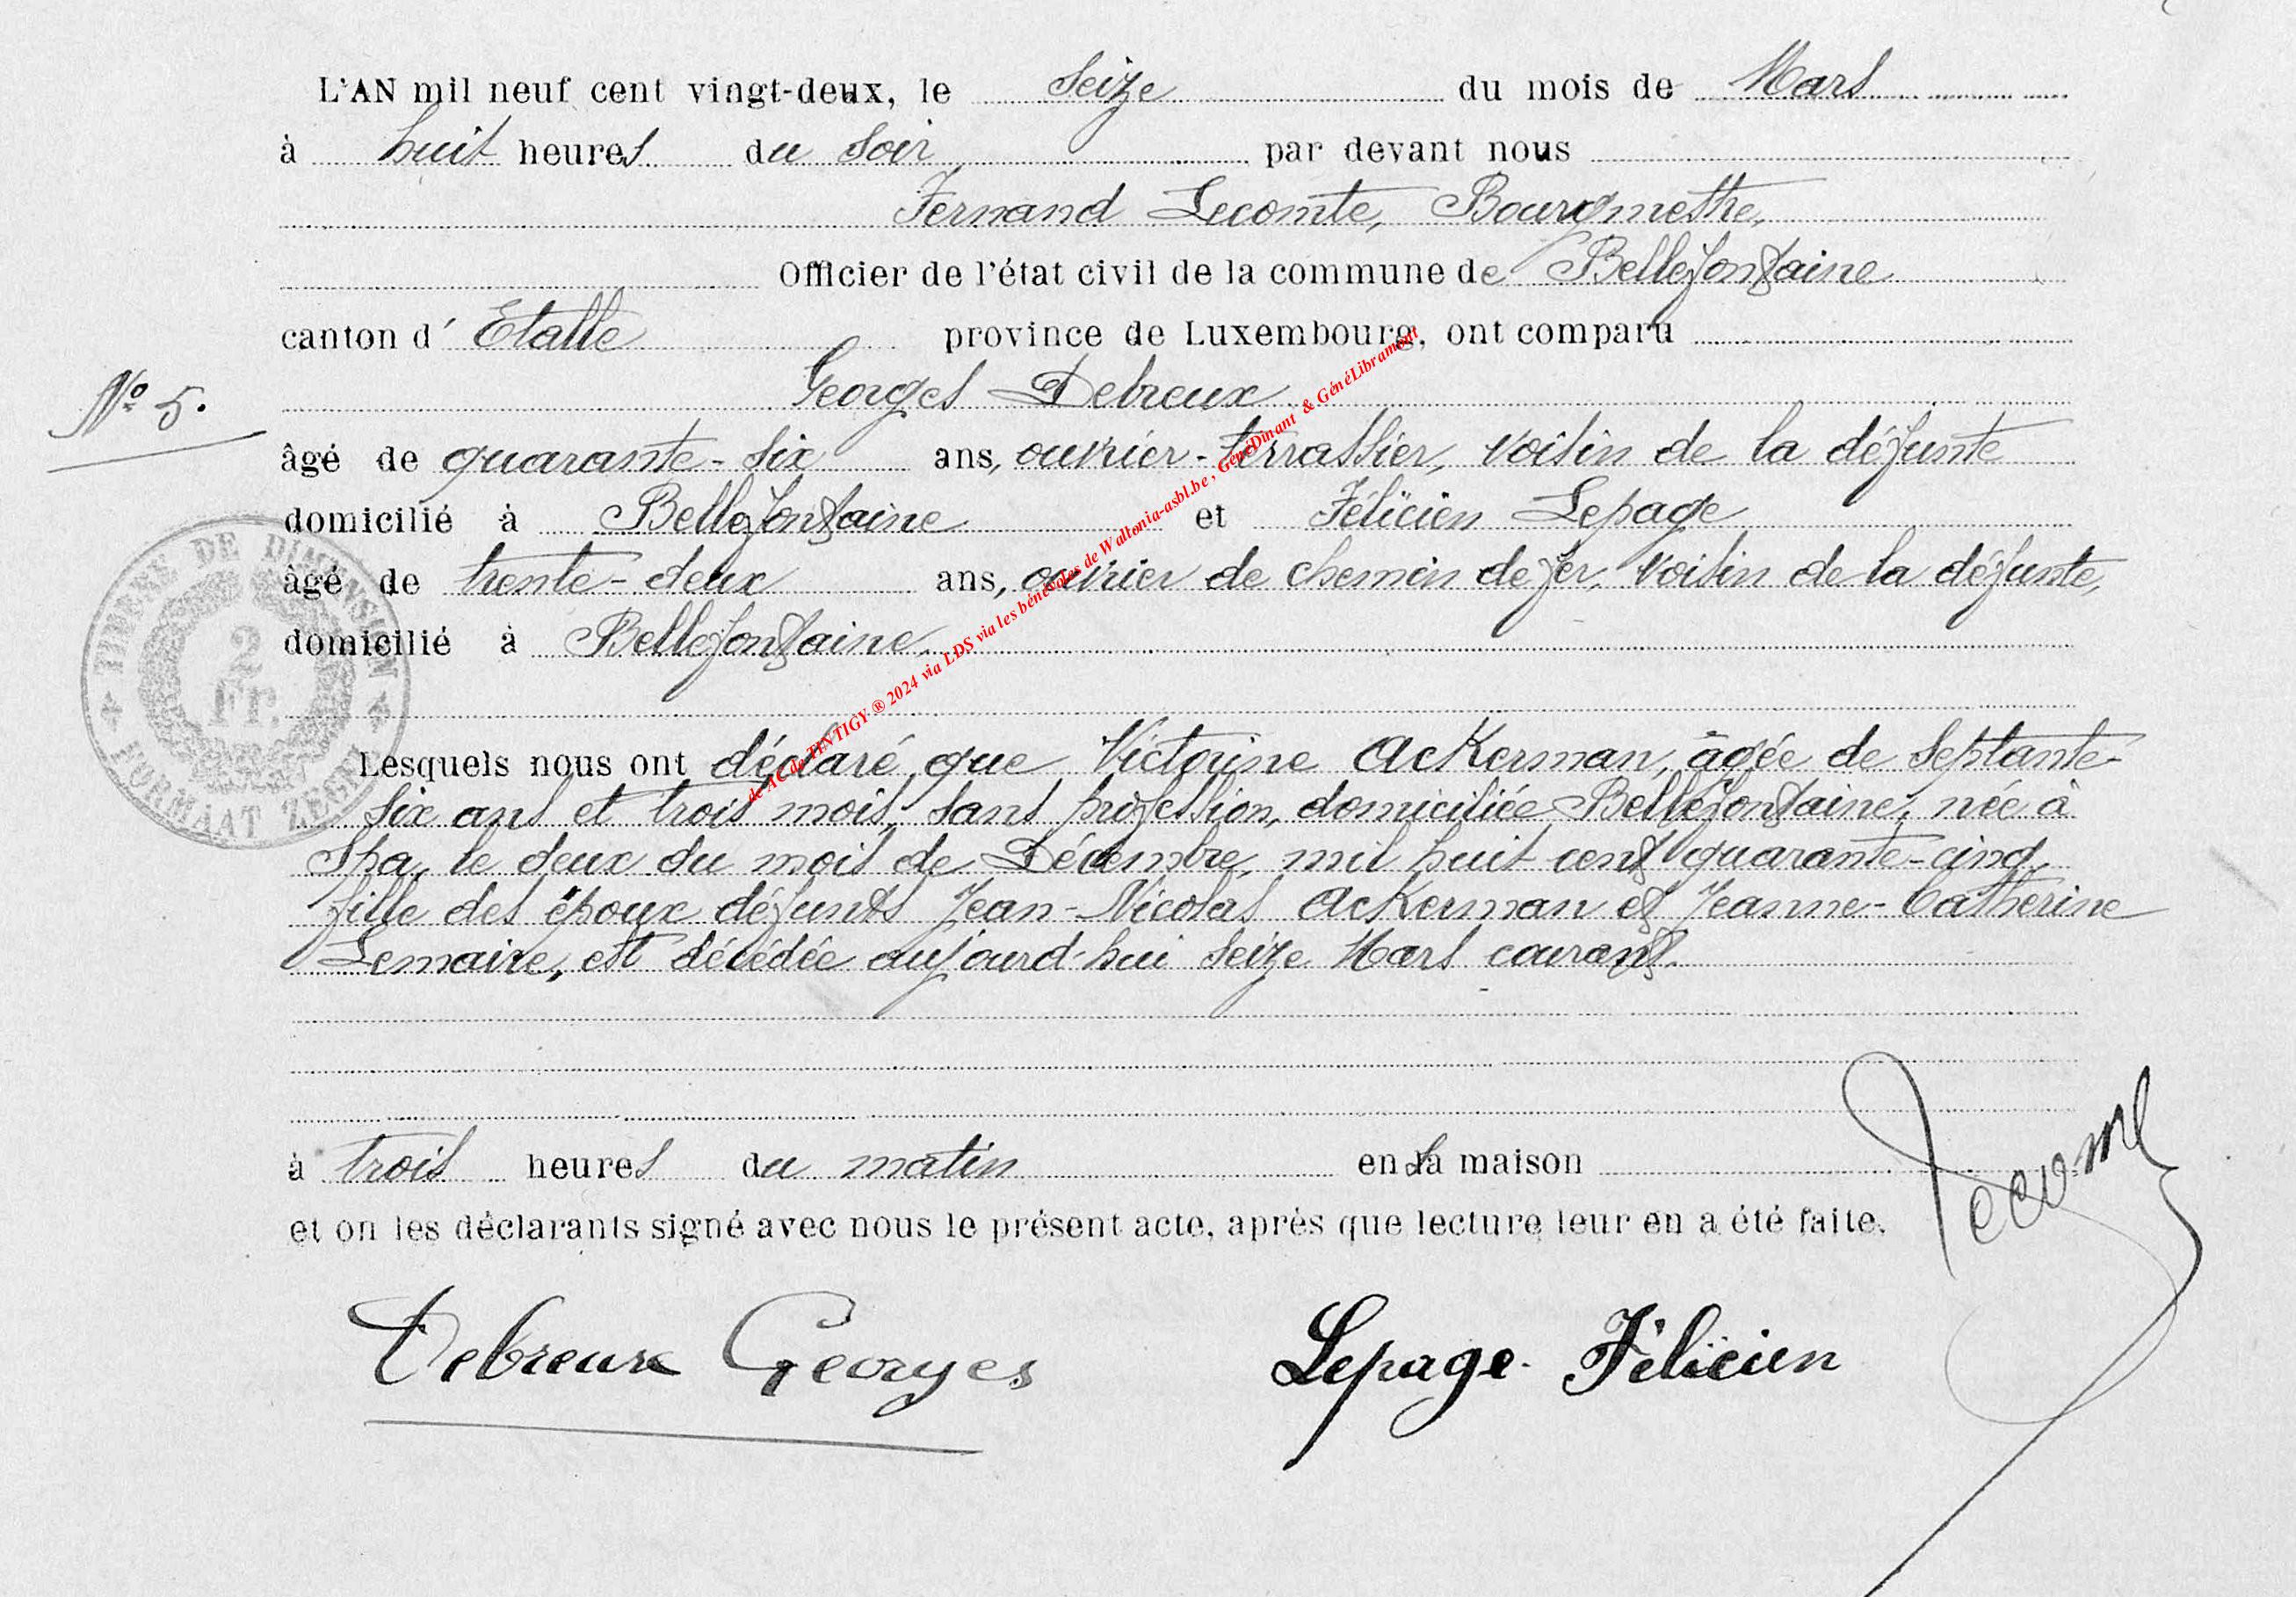 L'AN mil neuf cent vingt-deux, le seize du mois de Mars
à huit heures du soir par devant nous
Fernand Lecomte, Bourgmestre,
Officier de l'état civil de la commune de Bellefontaine
canton d' Etalle province de Luxembourg, ont comparu
Georges Debreux
N° 5.
âgé de quarante-six ans, ouvrier-terrassier, voisin de la défunte
domicilié à Bellefontaine et Félicien Lepage
âgé de trente-deux ans, ouvrier de chemin de fer, voisin de la défunte,
domicilié à Bellefontaine.
TIMBRE DE DIMENSION
2
Fr.
FORMAAT ZEGEL
Lesquels nous ont déclaré que Victorine Ackerman, âgée de septante-
six ans et trois mois, sans profession, domiciliée Bellefontaine, née à
Spa, le deux du mois de Décembre, mil huit cent quarante-cinq,
fille des époux défunts Jean-Nicolas Ackerman et Jeanne-Catherine
Lemaire, est décédée aujourd'hui seize Mars courant.
à trois heures du matin en sa maison
et on les déclarants signé avec nous le présent acte, après que lecture leur en a été faite.
Lecomte
Debreux Georges Lepage Félicien
de AC de TINTIGY ® 2024 via LDS via les bénévoles de Waltonia-asbl.be, GénéDinant & GénéLibramont